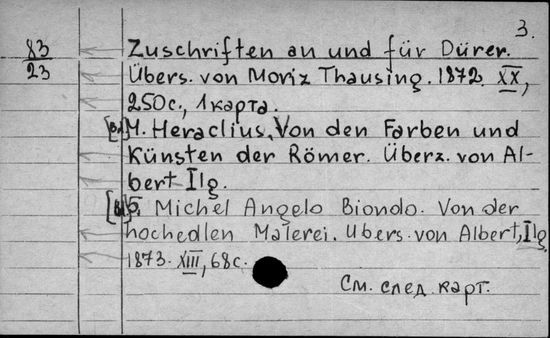 3.
83
23
Zuschriften an und für Dürer.
Übers. von Moriz Thausing. 1872. XX,
250с., 1 карта.
4. Heraclius, Von den Farben und
Künsten der Römer. Überz. von Al-
bert Ilg.
5. Michel Angelo Biondo. Von der
hochedlen Malerei. Übers. von Albert, Ilg
1873. XIII, 68с.
См. след. карт.